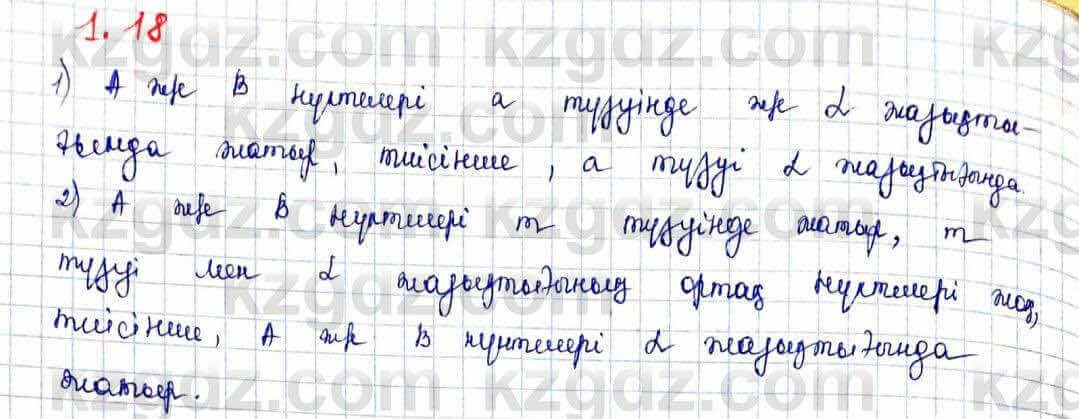 1.18
1) А ж/е В нүктелері а түзуінде ж/е α жазықты-
ғында жатыр, тиісінше, а түзуі α жазықтығында.
2) А ж/е В нүктелері m түзуінде жатыр, m
түзуі мен α жазықтығының ортақ нүктелері жоқ,
тиісінше, А ж/е В нүктелері α жазықтығында
жатыр.
kzgdz.com